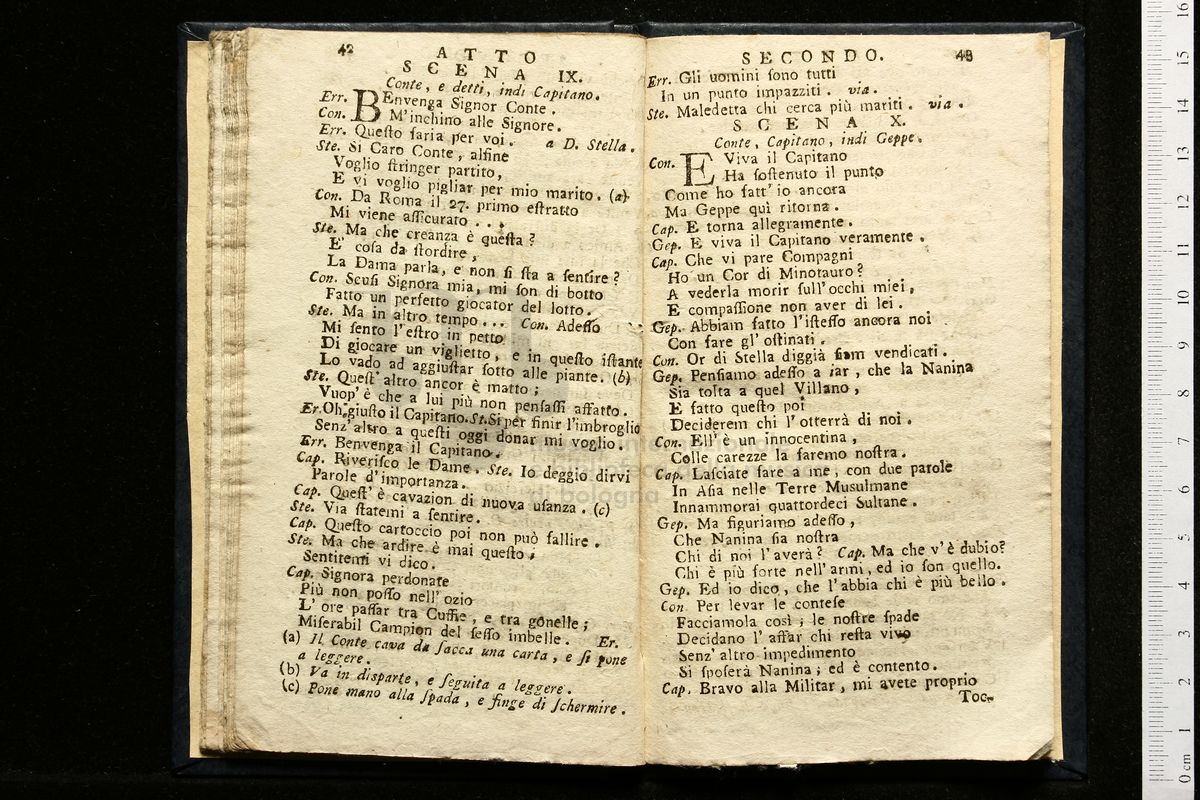 42
ATTO
SCENA IX.
Conte, e detti, indi Capitano.
Err. BEnvenga Signor Conte.
Con. M'inchino alle Signore.
Err. Queſto ſaria per voi. a D. Stella.
Ste. Sì Caro Conte, alfine
Voglio ſtringer partito,
E vi voglio pigliar per mio marito. (a)
Con. Da Roma il 27. primo eſtratto
Mi viene aſſicurato . . .
Ste. Ma che creanza è queſta?
E' coſa da ſtordire,
La Dama parla, e non ſi ſta a ſentire?
Con. Scuſi Signora mia, mi ſon di botto
Fatto un perfetto giocator del lotto.
Ste. Ma in altro tempo... Con. Adeſſo
Mi ſento l'eſtro in petto
Di giocare un viglietto, e in queſto iſtante
Lo vado ad aggiuſtar ſotto alle piante. (b)
Ste. Queſt' altro ancor è matto;
Vuop' è che a lui più non penſaſſi affatto.
Er. Oh, giuſto il Capitano. St. Si per finir l'imbroglio
Senz' altro a queſti oggi donar mi voglio.
Err. Benvenga il Capitano.
Cap. Riveriſco le Dame. Ste. Io deggio dirvi
Parole d'importanza.
Cap. Queſt' è cavazion di nuova uſanza. (c)
Ste. Via ſtatemi a ſentire.
Cap. Queſto cartoccio poi non può fallire.
Ste. Ma che ardire è mai queſto;
Sentitemi vi dico.
Cap. Signora perdonate
Più non poſſo nell' ozio
L' ore paſſar tra Cuffie, e tra gonelle;
Miſerabil Campion del ſeſſo imbelle. Er.
(a) Il Conte cava da ſacca una carta, e ſi pone
a leggere.
(b) Va in diſparte, e ſeguita a leggere.
(c) Pone mano alla ſpada, e finge di ſchermire.
SECONDO. 43
Err. Gli uomini ſono tutti
In un punto impazziti. via.
Ste. Maledetta chi cerca più mariti. via.
SCENA X.
Conte, Capitano, indi Geppe.
Con. E Viva il Capitano
Ha ſoſtenuto il punto
Come ho fatt' io ancora
Ma Geppe quì ritorna.
Cap. E torna allegramente.
Gep. E viva il Capitano veramente.
Cap. Che vi pare Compagni
Ho un Cor di Minotauro?
A vederla morir ſull'occhi miei,
E compaſſione non aver di lei.
Gep. Abbiam fatto l'iſteſſo ancora noi
Con fare gl' oſtinati.
Con. Or di Stella diggià ſiam vendicati.
Gep. Penſiamo adeſſo a far, che la Nanina
Sia tolta a quel Villano,
E fatto queſto poi
Deciderem chi l'otterrà di noi.
Con. Ell' è un innocentina,
Colle carezze la faremo noſtra.
Cap. Laſciate fare a me, con due parole
In Aſia nelle Terre Muſulmane
Innamorai quattordeci Sultane.
Gep. Ma figuriamo adeſſo,
Che Nanina ſia noſtra
Chi di noi l'averà? Cap. Ma che v'è dubio?
Chi è più forte nell' armi, ed io ſon quello.
Gep. Ed io dico, che l'abbia chi è più bello.
Con. Per levar le conteſe
Facciamola così; le noſtre ſpade
Decidano l' affar chi reſta vivo
Senz' altro impedimento
Si ſpoſerà Nanina; ed è contento.
Cap. Bravo alla Militar, mi avete proprio
Toc-
di bologna
0 cm 1 2 3 4 5 6 7 8 9 10 11 12 13 14 15 16